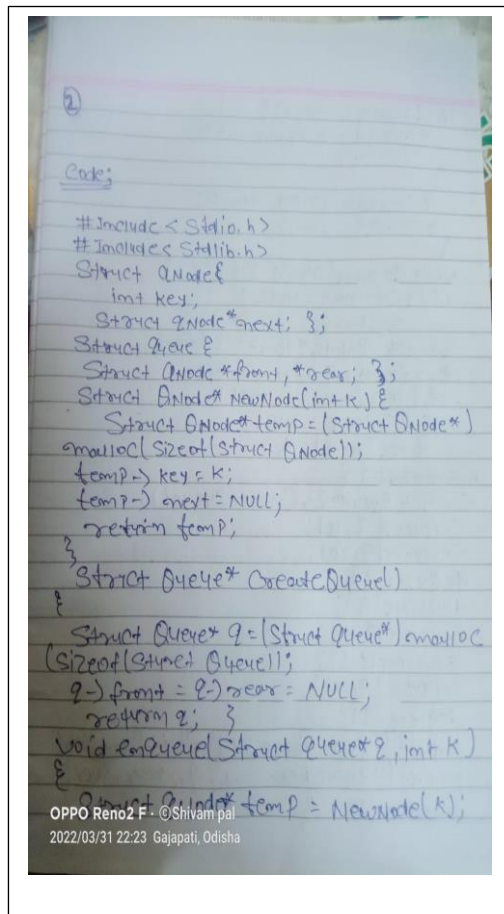 2
Code;
#Include < Stdio.h>
#Include< Stdlib.h>
Struct QNode{
int key;
Struct QNode* next; };
Struct Queue {
Struct QNode *front, *rear; };
Struct QNode* NewNode(int k) {
Struct QNode* temp = (Struct QNode*)
malloc(Sizeof(Struct QNode));
temp-> key = k;
temp-> next = NULL;
return temp;
}
Struct Queue* CreateQueue()
{
Struct Queue* q = (Struct Queue*) malloc
(Sizeof(Struct Queue));
q-> front = q-> rear = NULL;
return q; }
Void enqueue(Struct Queue* q, int k)
{
Struct QNode* temp = NewNode(k);
OPPO Reno2 F · ©Shivam pal
2022/03/31 22:23 Gajapati, Odisha